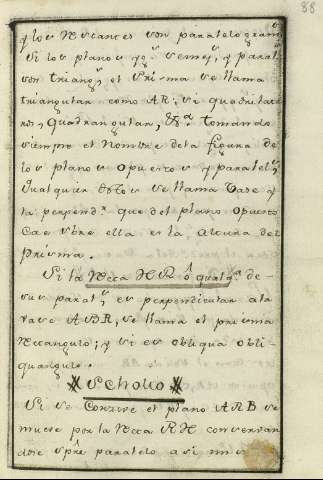 88
y los restantes son paralelogram.s
Si los planos y q.e semej.s y paral.s
son triang.s el Prisma se llama
triangular como AR; si quadrilate
ros, quadrangular, &.a tomando
siempre el nombre dela figura de
los planos opuestos y paralel.s
Qualquier de estos se llama Base y
la perpend.r que del plano opuesto
cae sobre ella es la altura del
Prisma.
Si la Recta HR ô qualq.a de
sus paral.s es perpendicular ala
vase ABR, se llama el prisma
Rectangulo; y si es obliqua obli-
quangulo.
Scholio
Si se Concive el plano ARB se
mueve por la Recta RH conservan
dose spre paralelo a si mis